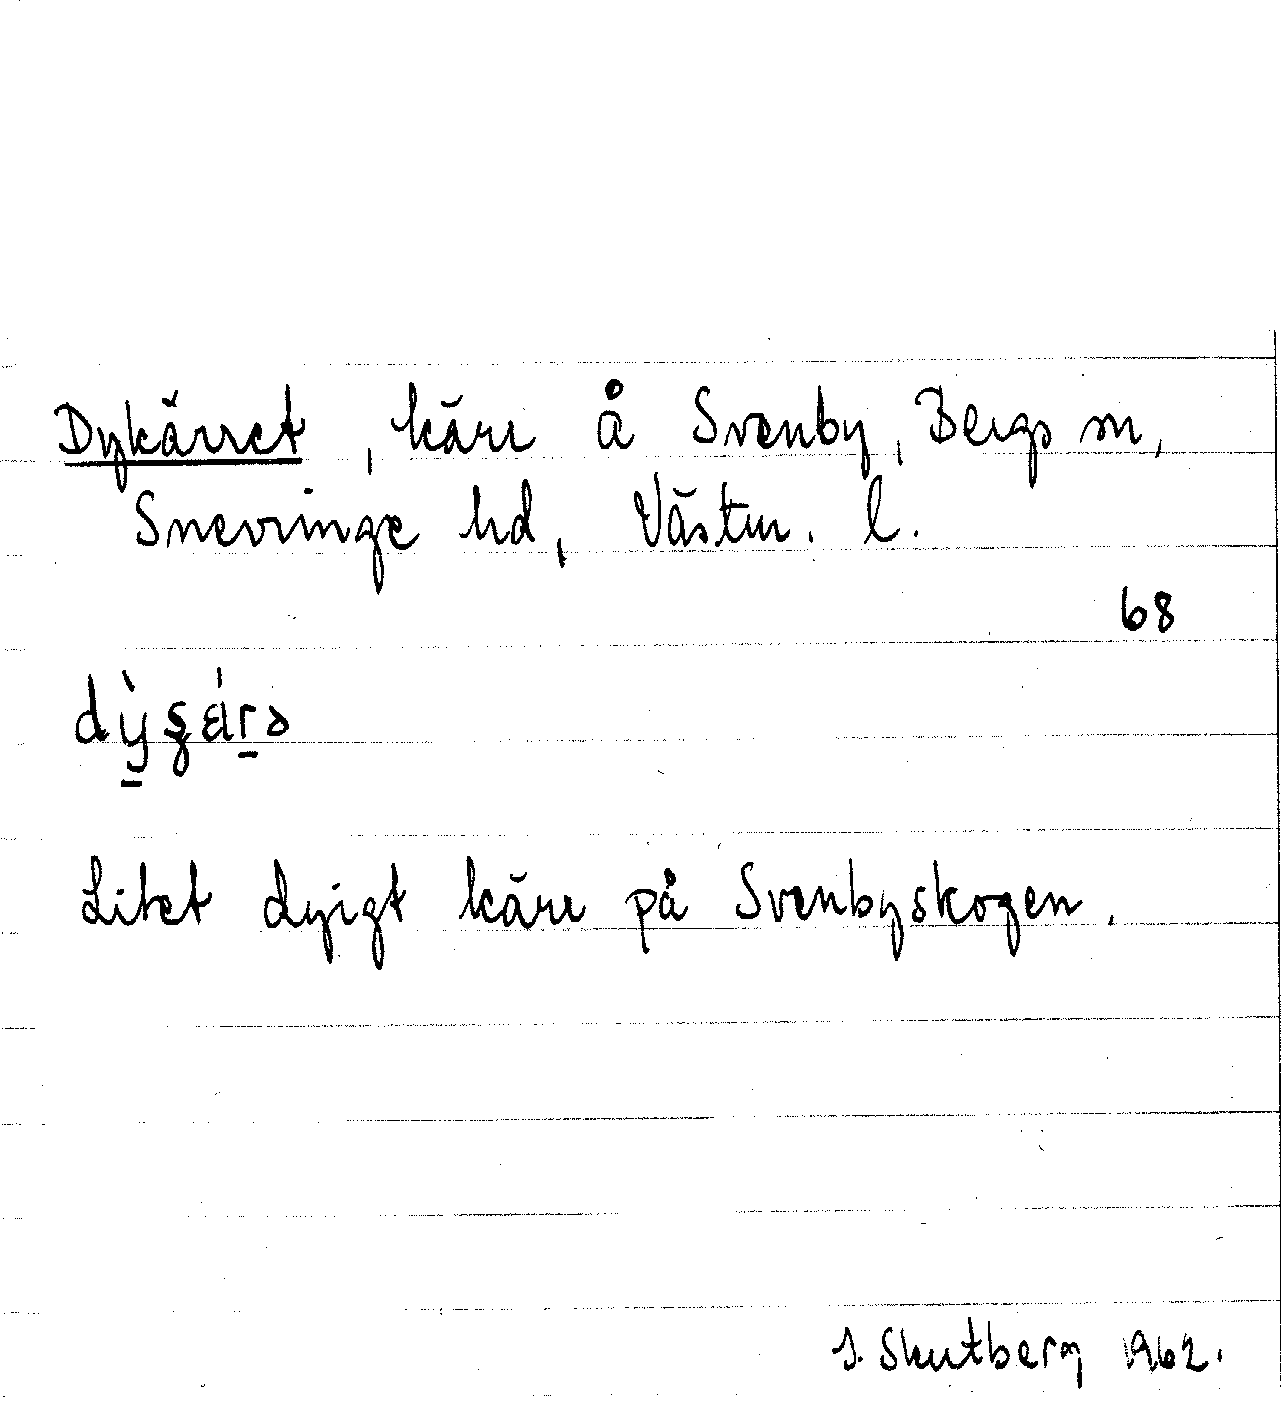 Dykärret, kärr å Svenby, Bergs sn,
Snevringe hd, Västm. l.
68
Litet dyigt kärr på Svenbyskogen.
S. Skutberg 1962.